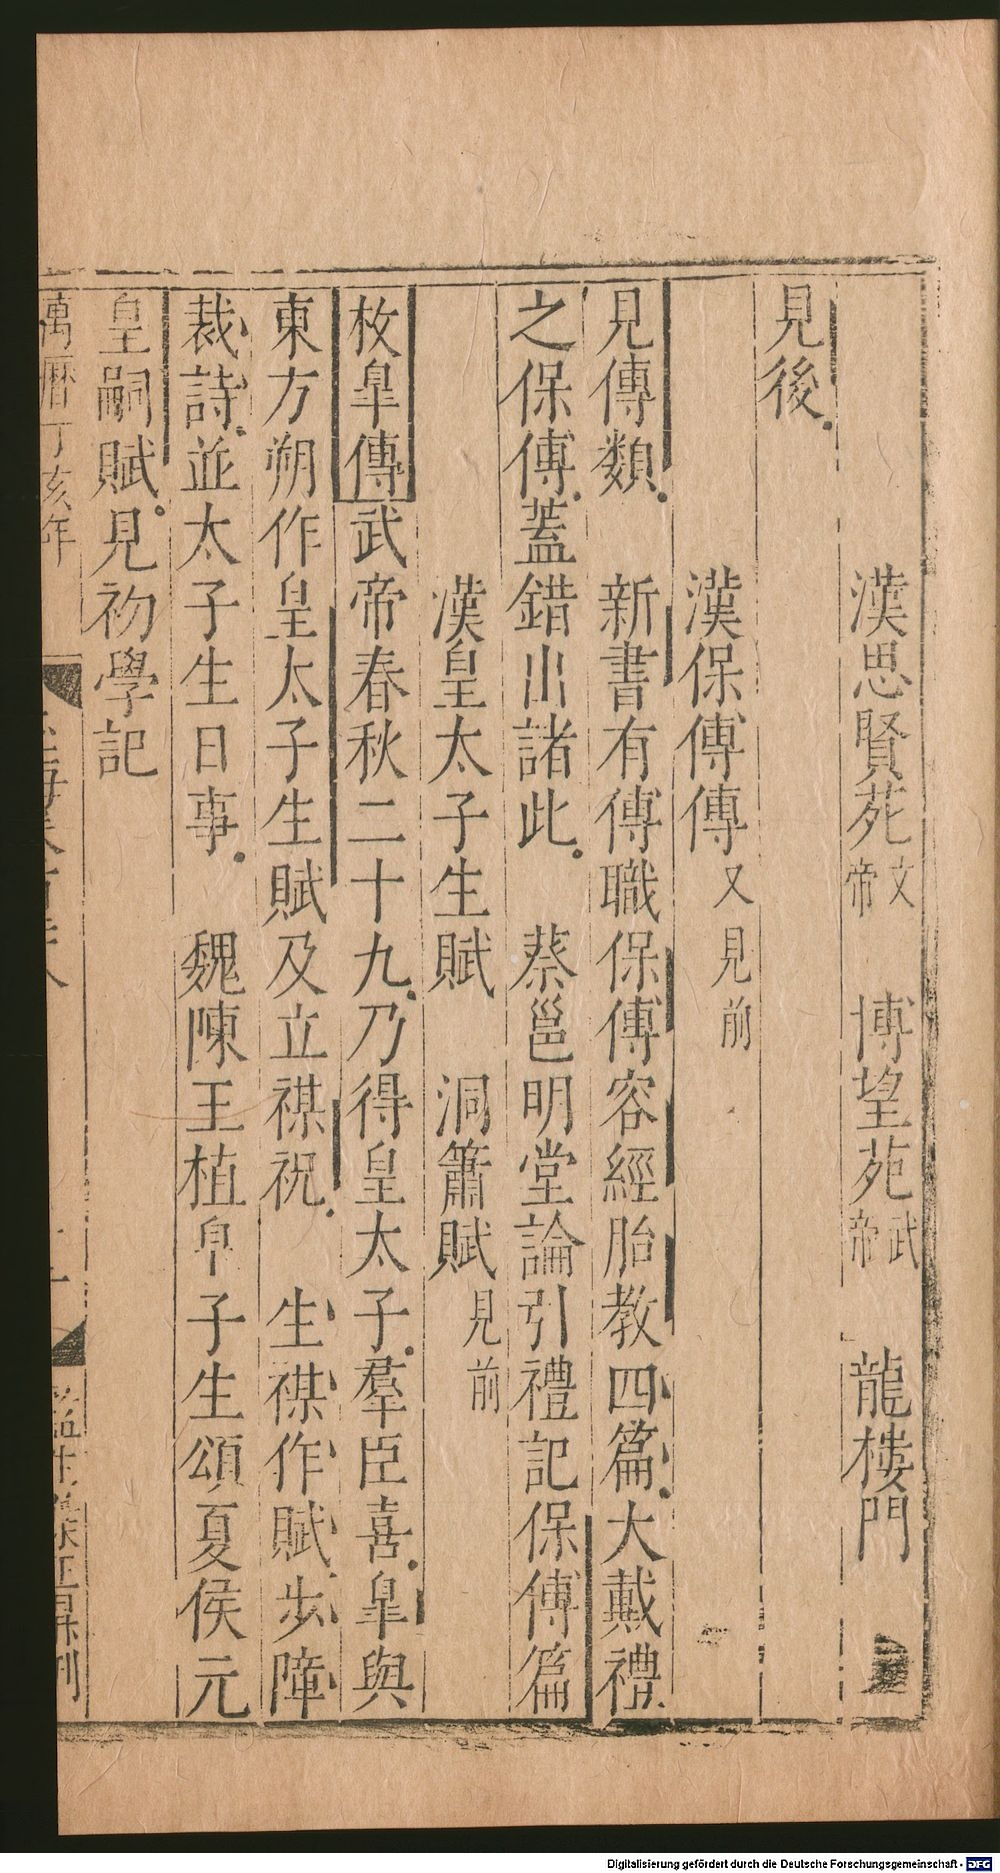 漢思賢苑文帝　博望苑武帝　龍樓門
見後
漢保傅傳又見前
見傅類　新書有傅職保傅容經胎教四篇大戴禮
之保傅蓋錯出諸此　蔡邕明堂論引禮記保傅篇
漢皇太子生賦　洞簫賦見前
枚皐傳武帝春秋二十九乃得皇太子羣臣喜皐與
東方朔作皇太子生賦及立禖祝　生禖作賦步障
裁詩並太子生日事　魏陳王植皇子生頌夏侯元
皇嗣賦見初學記
萬曆丁亥年
Digitalisierung gefördert durch die Deutsche Forschungsgemeinschaft - DFG